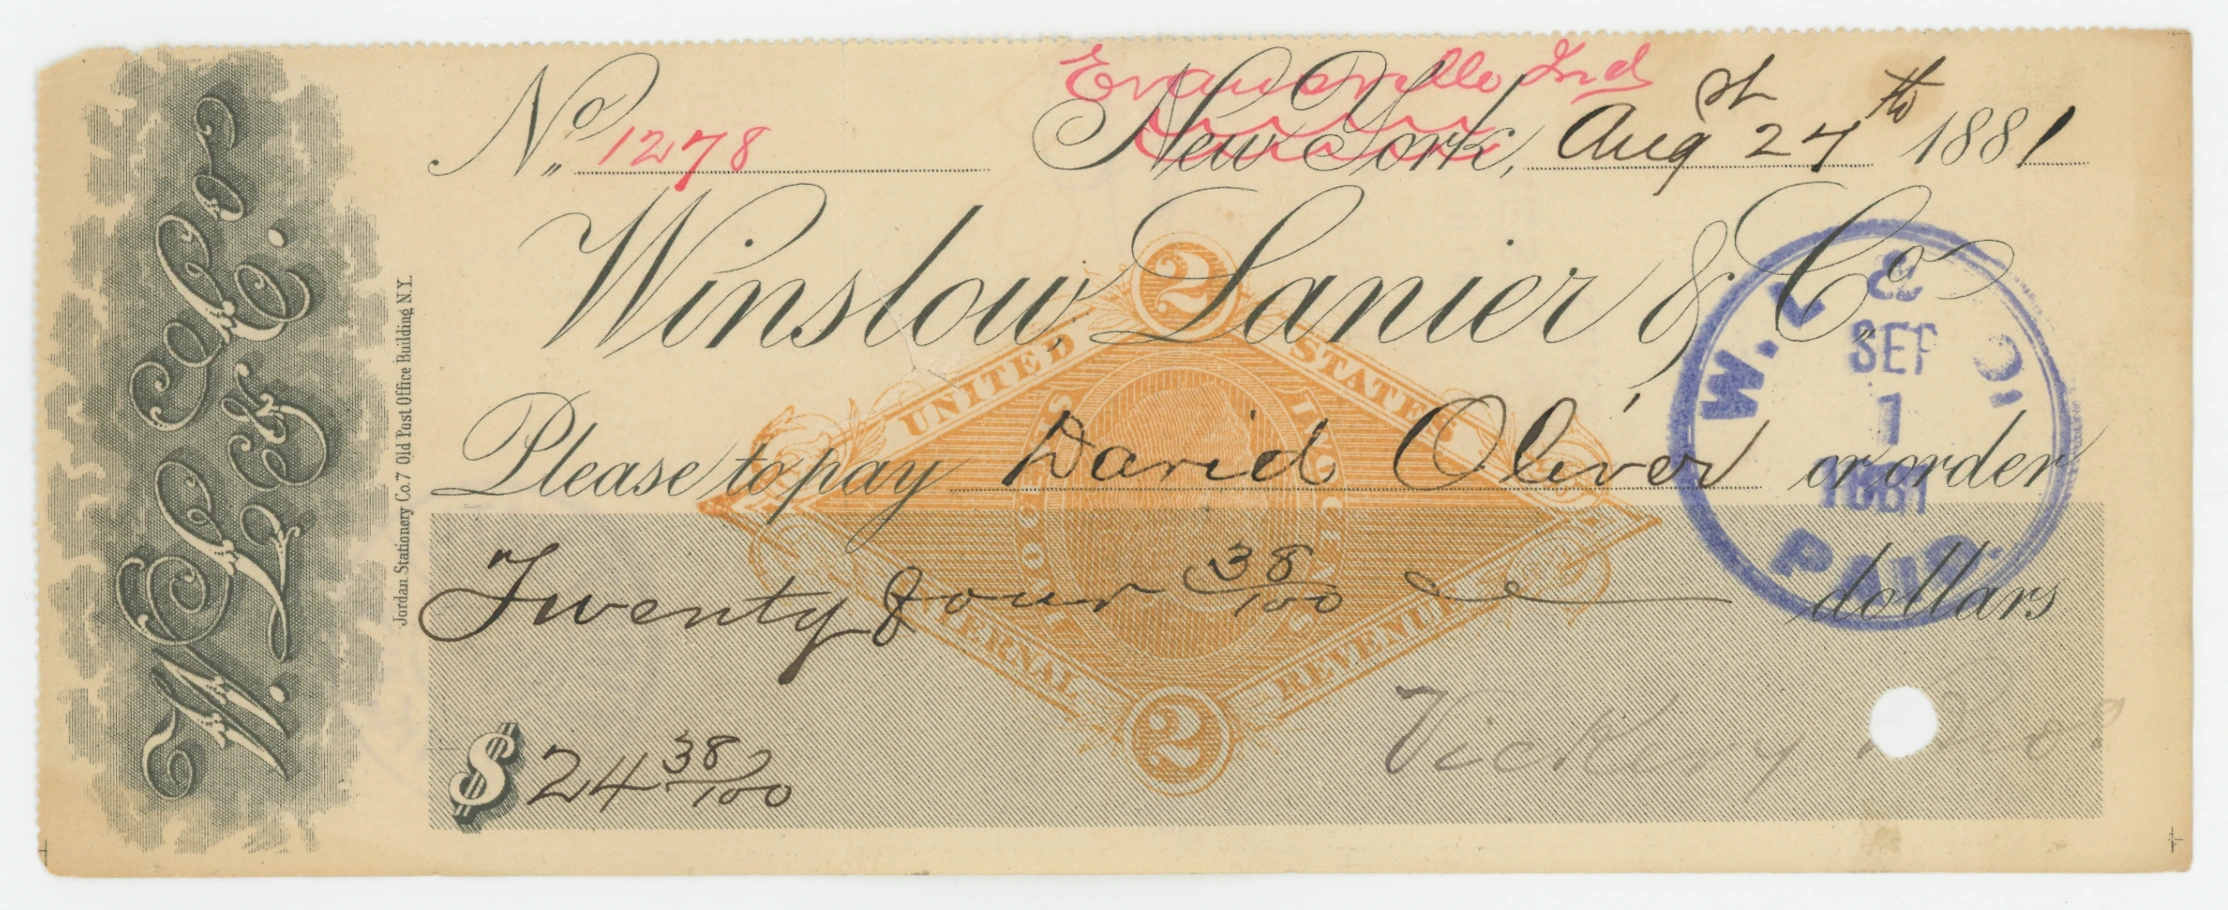 W. L. & Co.
W. L. & Co.
Jordan Stationery Co. 7 Old Post Office Building N.Y.
Evansville Ind
No. 1278 New York, Augst 27th 1881
Winslow, Lanier & Co.
Please to pay David Oliver or order
Twenty four 38/100 dollars
$ 24 38/100
Vickery
2
UNITED STATES
INTERNAL REVENUE
2
W. L. & Co.
SEP
1
1881
PAID.